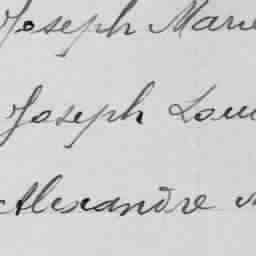 Joseph Marie
Joseph Lou
Alexandre